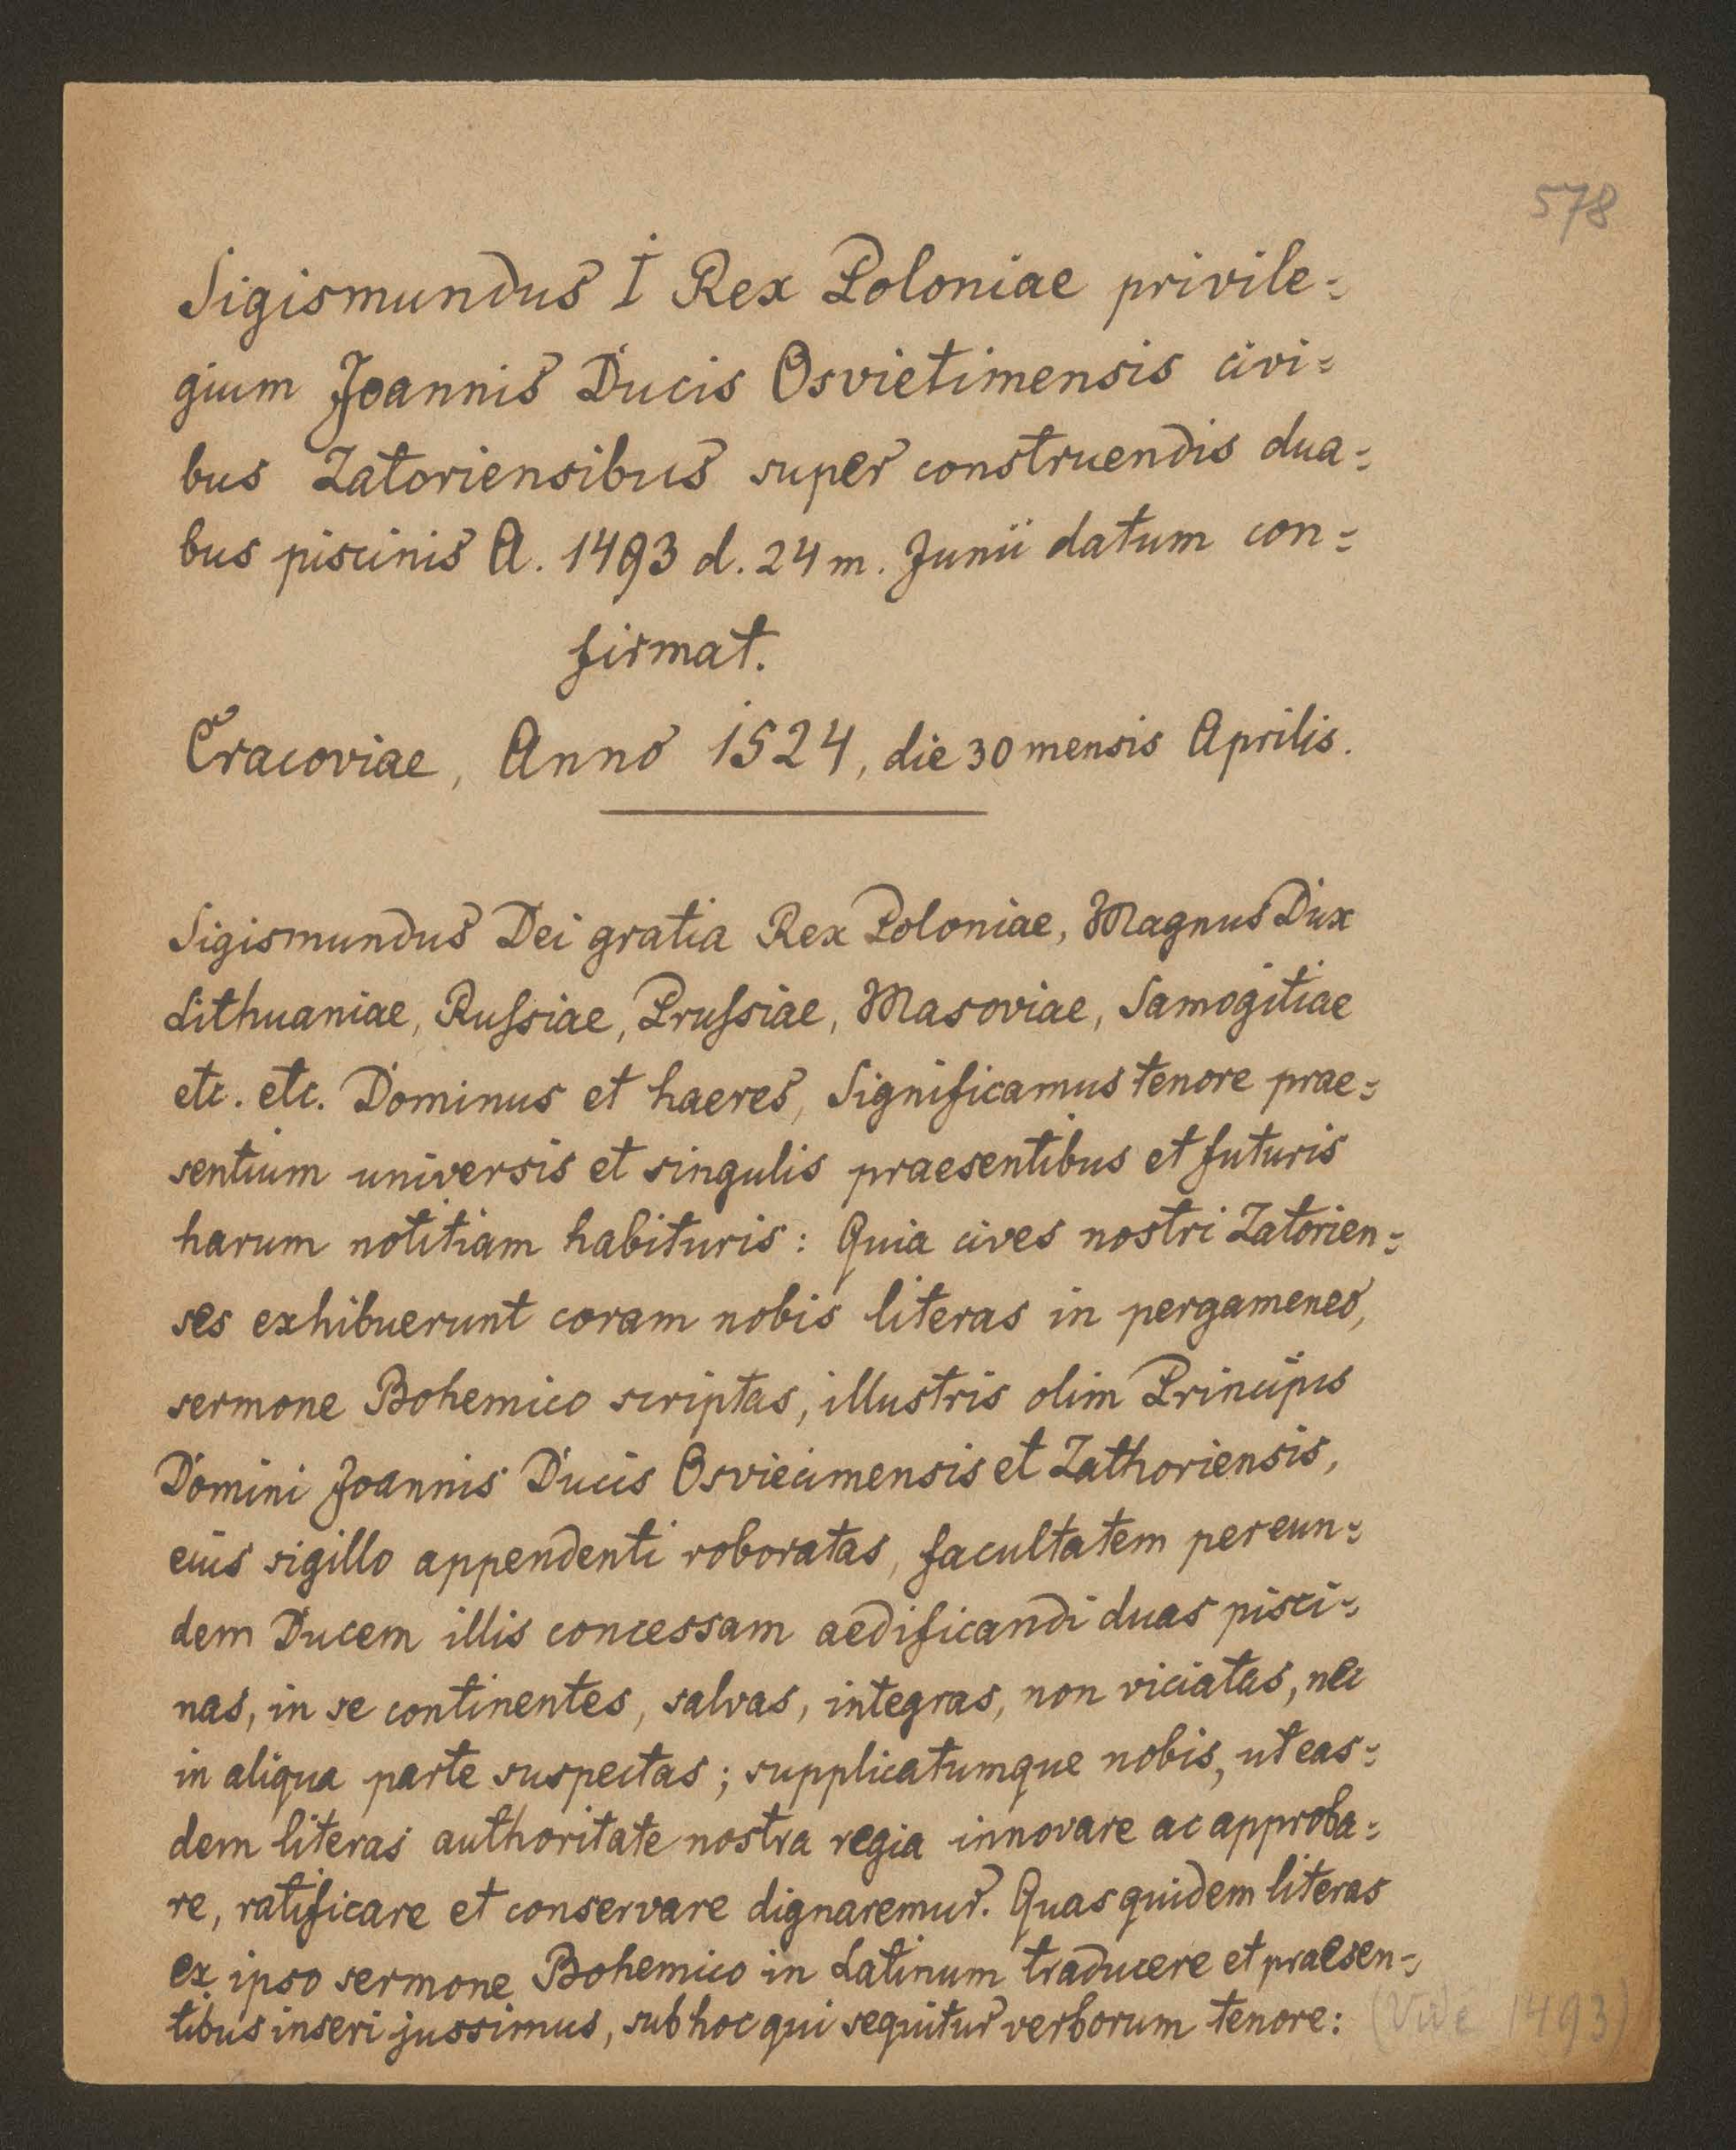 578
Sigismundus I Rex Poloniae privile=
gium Joannis Ducis Osvietimensis civi=
bus Zatoriensibus super construendis dua=
bus piscinis A. 1493 d. 24 m. Junii datum con=
firmat.
Cracoviae, Anno 1524, die 30 mensis Aprilis.
Sigismundus Dei gratia Rex Poloniae, Magnus Dux
Lithuaniae, Ruſsiae, Pruſsiae, Masoviae, Samogitiae
etc. etc. Dominus et haeres, Significamus tenore prae=
sentium universis et singulis praesentibus et futuris
harum notitiam habituris: Quia cives nostri Zatorien=
ses exhibuerunt coram nobis literas in pergameneo,
sermone Bohemico scriptas, illustris olim Principis
Domini Joannis Ducis Osviecimensis et Zathoriensis,
eius sigillo appendenti roboratas, facultatem per eun=
dem Ducem illis concessam aedificandi duas pisci=
nas, in se continentes, salvas, integras, non viciatas, nec
in aliqua parte suspectas; supplicatumque nobis, ut eas=
dem literas authoritate nostra regia innovare ac approba=
re, ratificare et conservare dignaremur. Quas quidem literas
ex ipso sermone Bohemico in Latinum traducere et praesen=
tibus inseri jussimus, sub hoc qui sequitur verborum tenore: (Vide 1493)